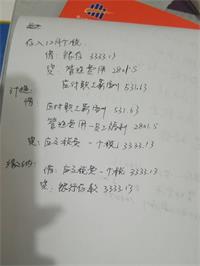 存入12月个税
借:银存 3333.13
贷:管理费用 2801.5
应付职工薪酬 531.63
计提:
借 应付职工薪酬 531.63
管理费用-员工福利 2801.5
贷:应交税费-个税 3333.13
缴纳:
借:应交税费-个税 3333.13
贷:银行存款 3333.13